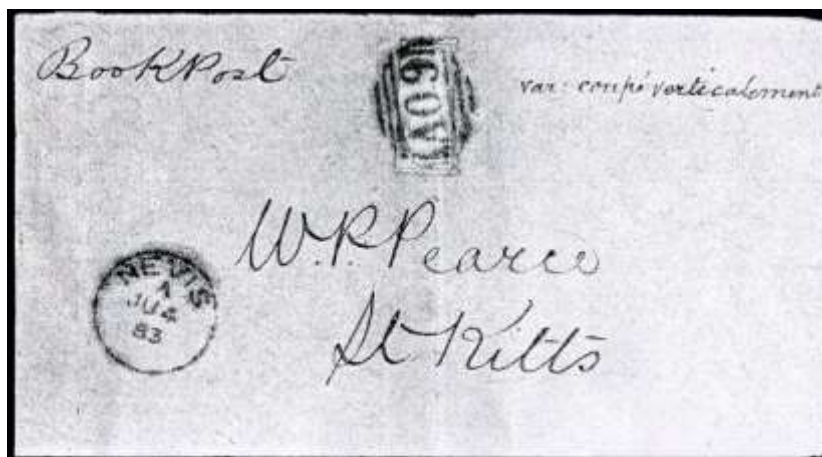 Book Post
A09
var: coupé verticalement
W.P. Pearce
St Kitts
NEVIS
A
JU 4
83